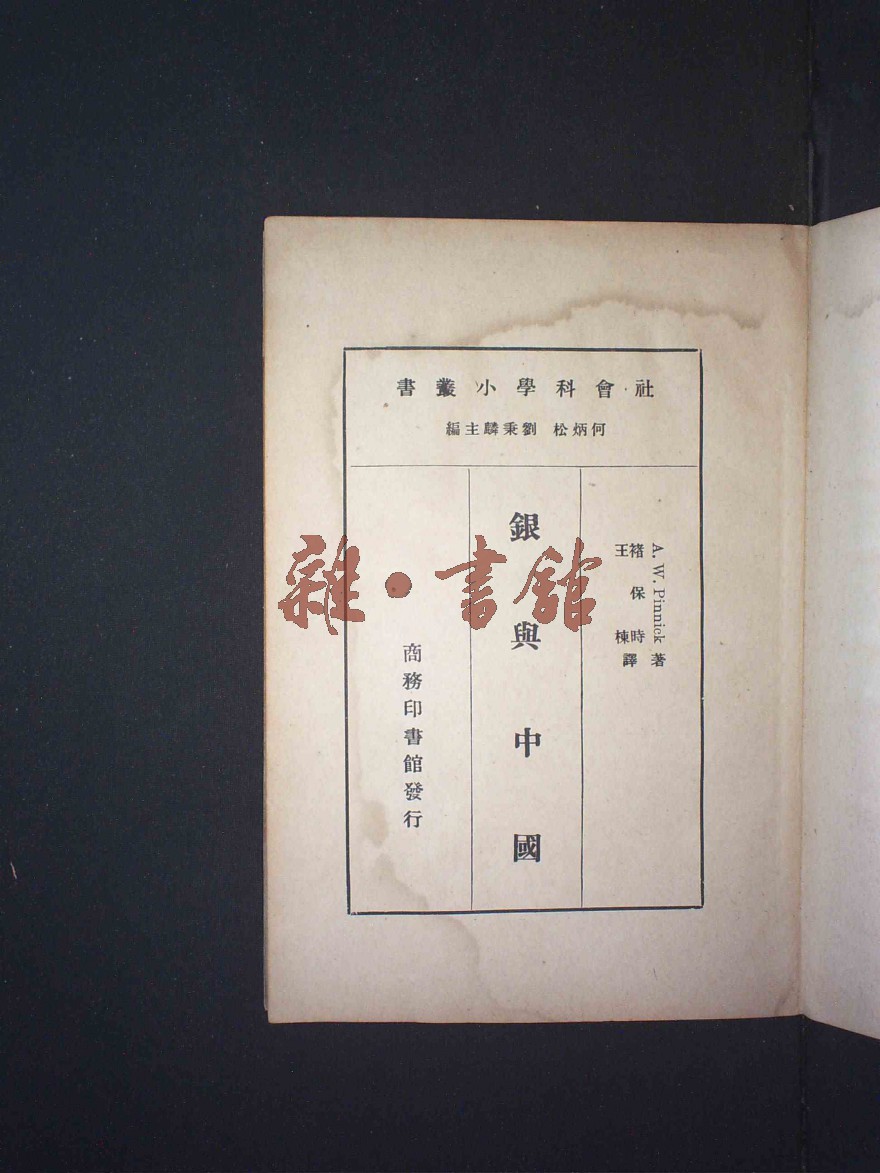 社會科學小叢書
何炳松 劉秉麟主編
A. W. Pinnick 著
褚保時
王棟 譯
銀與中國
商務印書館發行
雜·書館